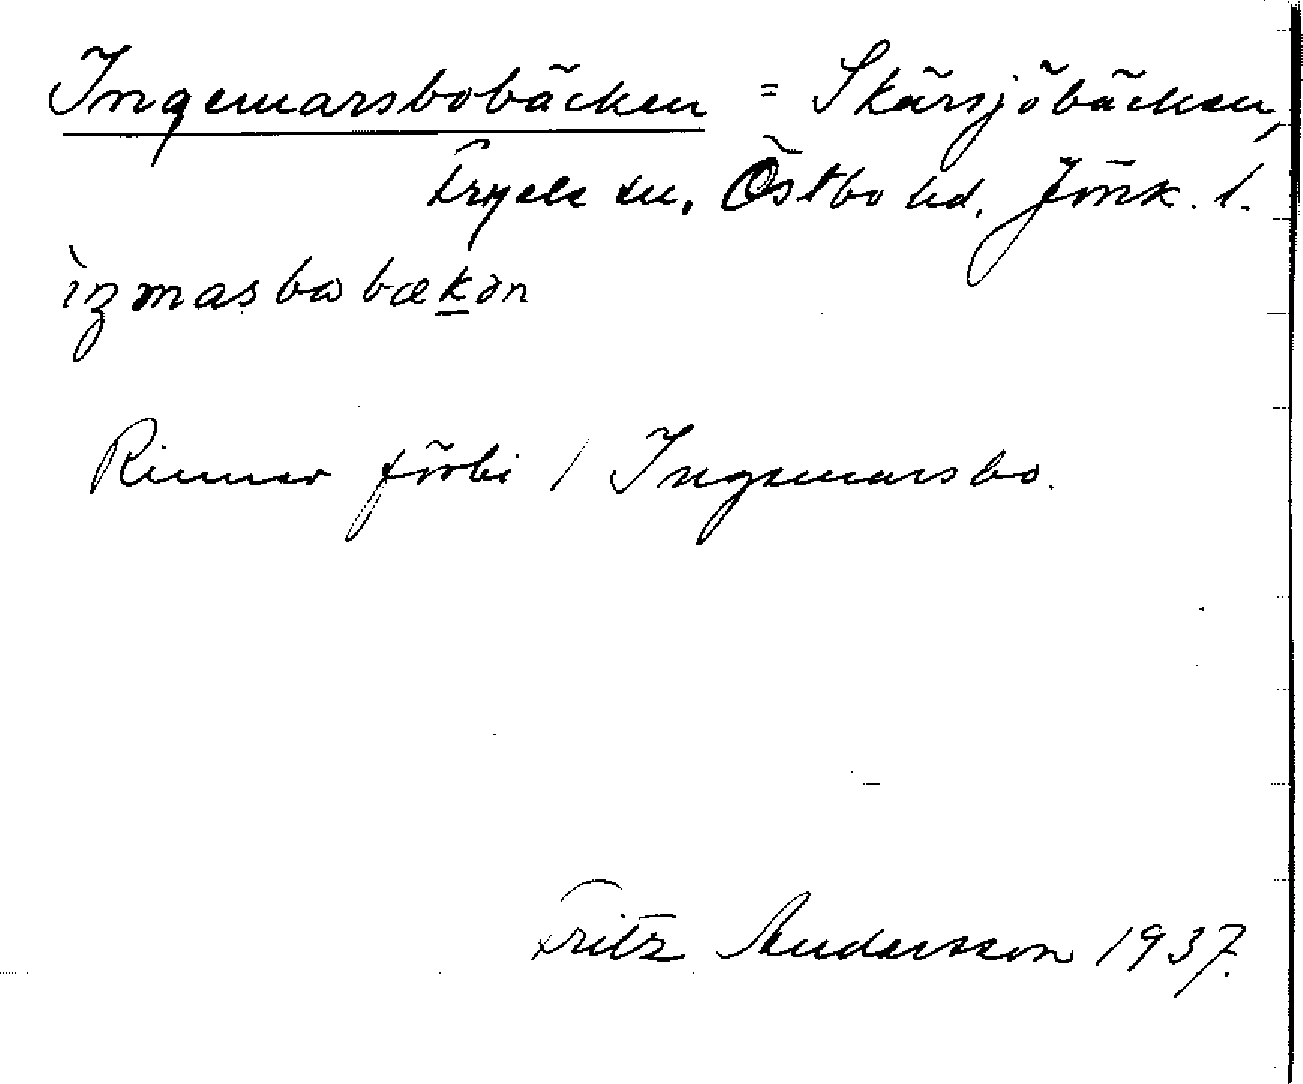 Ingemarsbobäcken = Skärsjöbäcken,
Fryele sn. Östbo hd. Jönk. l.
Rinner förbi / Ingemarsbo.
Fritz Andersson 1937.